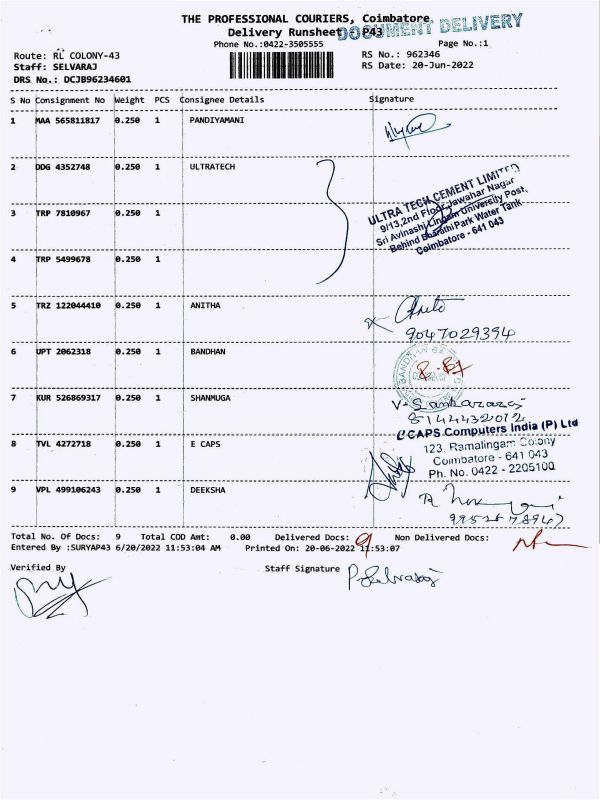 THE PROFESSIONAL COURIERS, Coimbatore
DOCUMENT DELIVERY
Delivery Runsheet P43
Phone No.:0422-3505555
Page No.:1
Route: RL COLONY-43
RS No.: 962346
Staff: SELVARAJ
RS Date: 20-Jun-2022
DRS No.: DCJB96234601
S No Consignment No Weight PCS Consignee Details Signature
1 MAA 565811817 0.250 1 PANDIYAMANI
2 DDG 4352748 0.250 1 ULTRATECH
ULTRA TECH CEMENT LIMITED
9/13,2nd Floor,Jawahar Nagar
Sri Avinashi Lingam University Post,
Behind Bharathi Park Water Tank
Coimbatore - 641 043
3 TRP 7810967 0.250 1
4 TRP 5499678 0.250 1
5 TRZ 122044410 0.250 1 ANITHA
Anita
9047029394
6 UPT 2062318 0.250 1 BANDHAN
7 KUR 526869317 0.250 1 SHANMUGA
V. Sankararaj
8144432012
8 TVL 4272718 0.250 1 E CAPS
CCAPS Computers India (P) Ltd
123, Ramalingam Colony
Coimbatore - 641 043
Ph. No. 0422 - 2205100
9 VPL 499106243 0.250 1 DEEKSHA
Total No. Of Docs: 9 Total COD Amt: 0.00 Delivered Docs: 9 Non Delivered Docs:
Entered By :SURYAP43 6/20/2022 11:53:04 AM Printed On: 20-06-2022 11:53:07
Verified By
Staff Signature P. Selvaraj